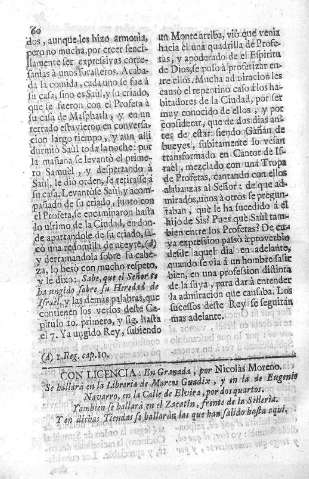 60
dos, aunque les hizo armonia,
pero no mucha, por creer senci-
llamente ser expressivas corte-
sanias à unos Forasteros. Acaba-
da la comida, cada uno se fue à
su casa, sino es Saùl, y su criado,
que se fueron con el Profeta à
su casa de Masphath, y en un
terrado estuvieron en conversa-
cion largo tiempo, y aun alli
durmiò Saùl toda la noche: por
la mañana se levantò el prime-
ro Samuel, y despertando à
Saùl, le diò orden, se retirasse à
su casa. Levantòse Saùl, y acom-
pañado de su criado, junto con
el Profeta, se encaminaron hasta
lo ultimo de la Ciudad, en don-
de apartandole de su criado, sa-
cò una redomita de azeyte, (A)
y derramandola sobre su cabe-
za, lo besò con mucho respeto,
y le dixo: Sabe, que el Señor te
ha ungido sobre su Heredad de
Israèl, y las demàs palabras, que
contienen los versos deste Ca-
pitulo 10. primero, y sig. hasta
el 7. Ya ungido Rey, subiendo
un Monte arriba, viò que venia
hacia èl una quadrilla de Profe-
tas, y apoderado de el Espiritu
de Dios, se puso à profetizar en-
tre ellos. Mucha admiracion les
causò el repentino caso à los ha-
bitadores de la Ciudad, por ser
muy conocido de ellos; y por
considerar, que de dos dias an-
tes de estar siendo Gañàn de
bueyes, subitamente lo veìan
transformado en Cantor de Is-
raèl, mezclado con una Tropa
de Profetas, cantando con ellos
alabanzas al Señor: de que ad-
mirados, unos à otros se pregun-
taban, què le ha sucedido à el
hijo de Sis? Pues què Saùl tam-
bien entre los Profetas? De cu-
ya expression passò à proverbio
desde aquel dia en adelante,
quando se vìa à un hombre salir
bien, en una profession distinta
de la suya, para dàr à entender
la admiracion que causaba. Los
sucessos deste Rey se seguiràn
mas adelante.
(A) 1. Reg. cap. 10.
CON LICENCIA. En Granada, por Nicolàs Moreno.
Se hallarà en la Libreria de Marcos Guadix, y en la de Eugenio
Navarro, en la Calle de Elvira, por dos quartos.
Tambien se hallarà en el Zacatin, frente de la Silleria.
Y en dichas Tiendas se hallaràn las que han salido hasta aqui.